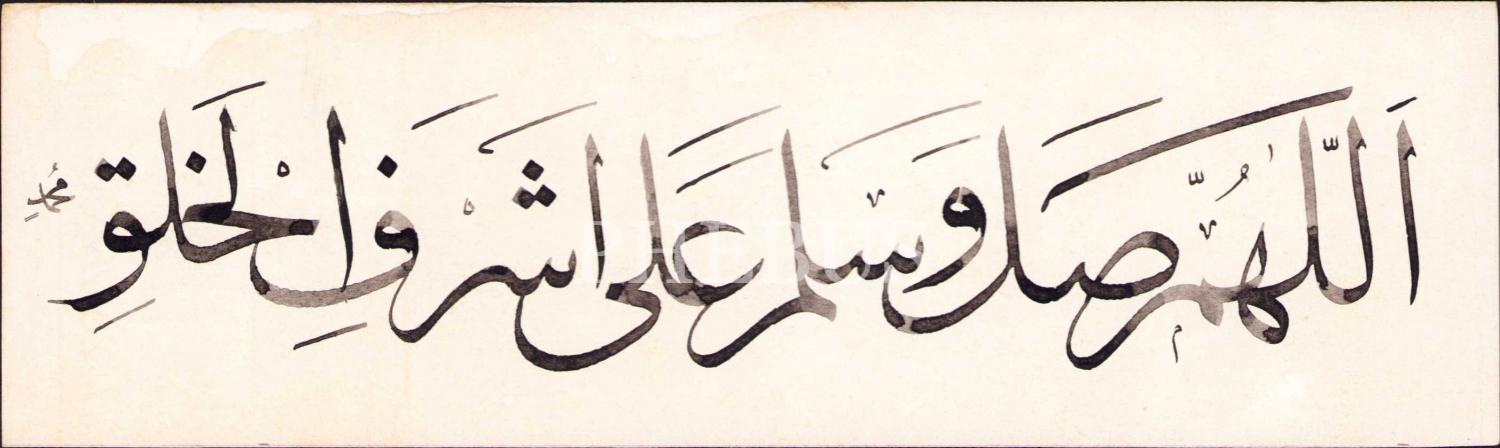 اَللّٰهُمَّ صَلِّ وَسَلِّمْ عَلَى اَشْرَفِ الْخَلْقِ
محمد
PHEBUS